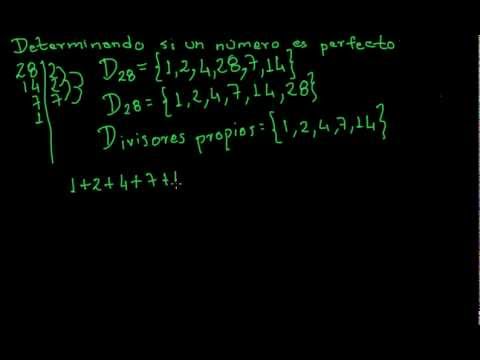 Determinando si un número es perfecto
28 | 2
14 | 2
7 | 7
1 |
D28 = {1,2,4,28,7,14}
D28 = {1,2,4,7,14,28}
Divisores propios = {1,2,4,7,14}
1+2+4+7+1